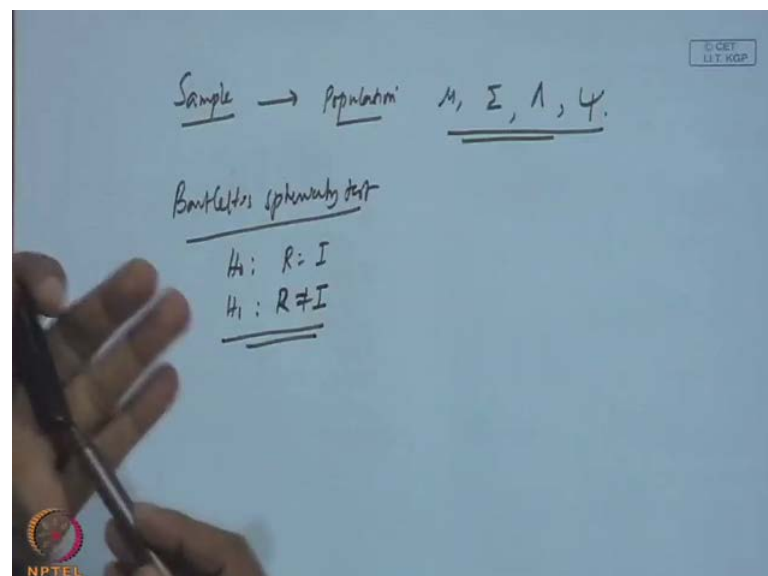 © CET
I.I.T. KGP
Sample → Population μ, Σ, Λ, Ψ.
Bartlett's sphericity test
H₀: R = I
H₁: R ≠ I
NPTEL